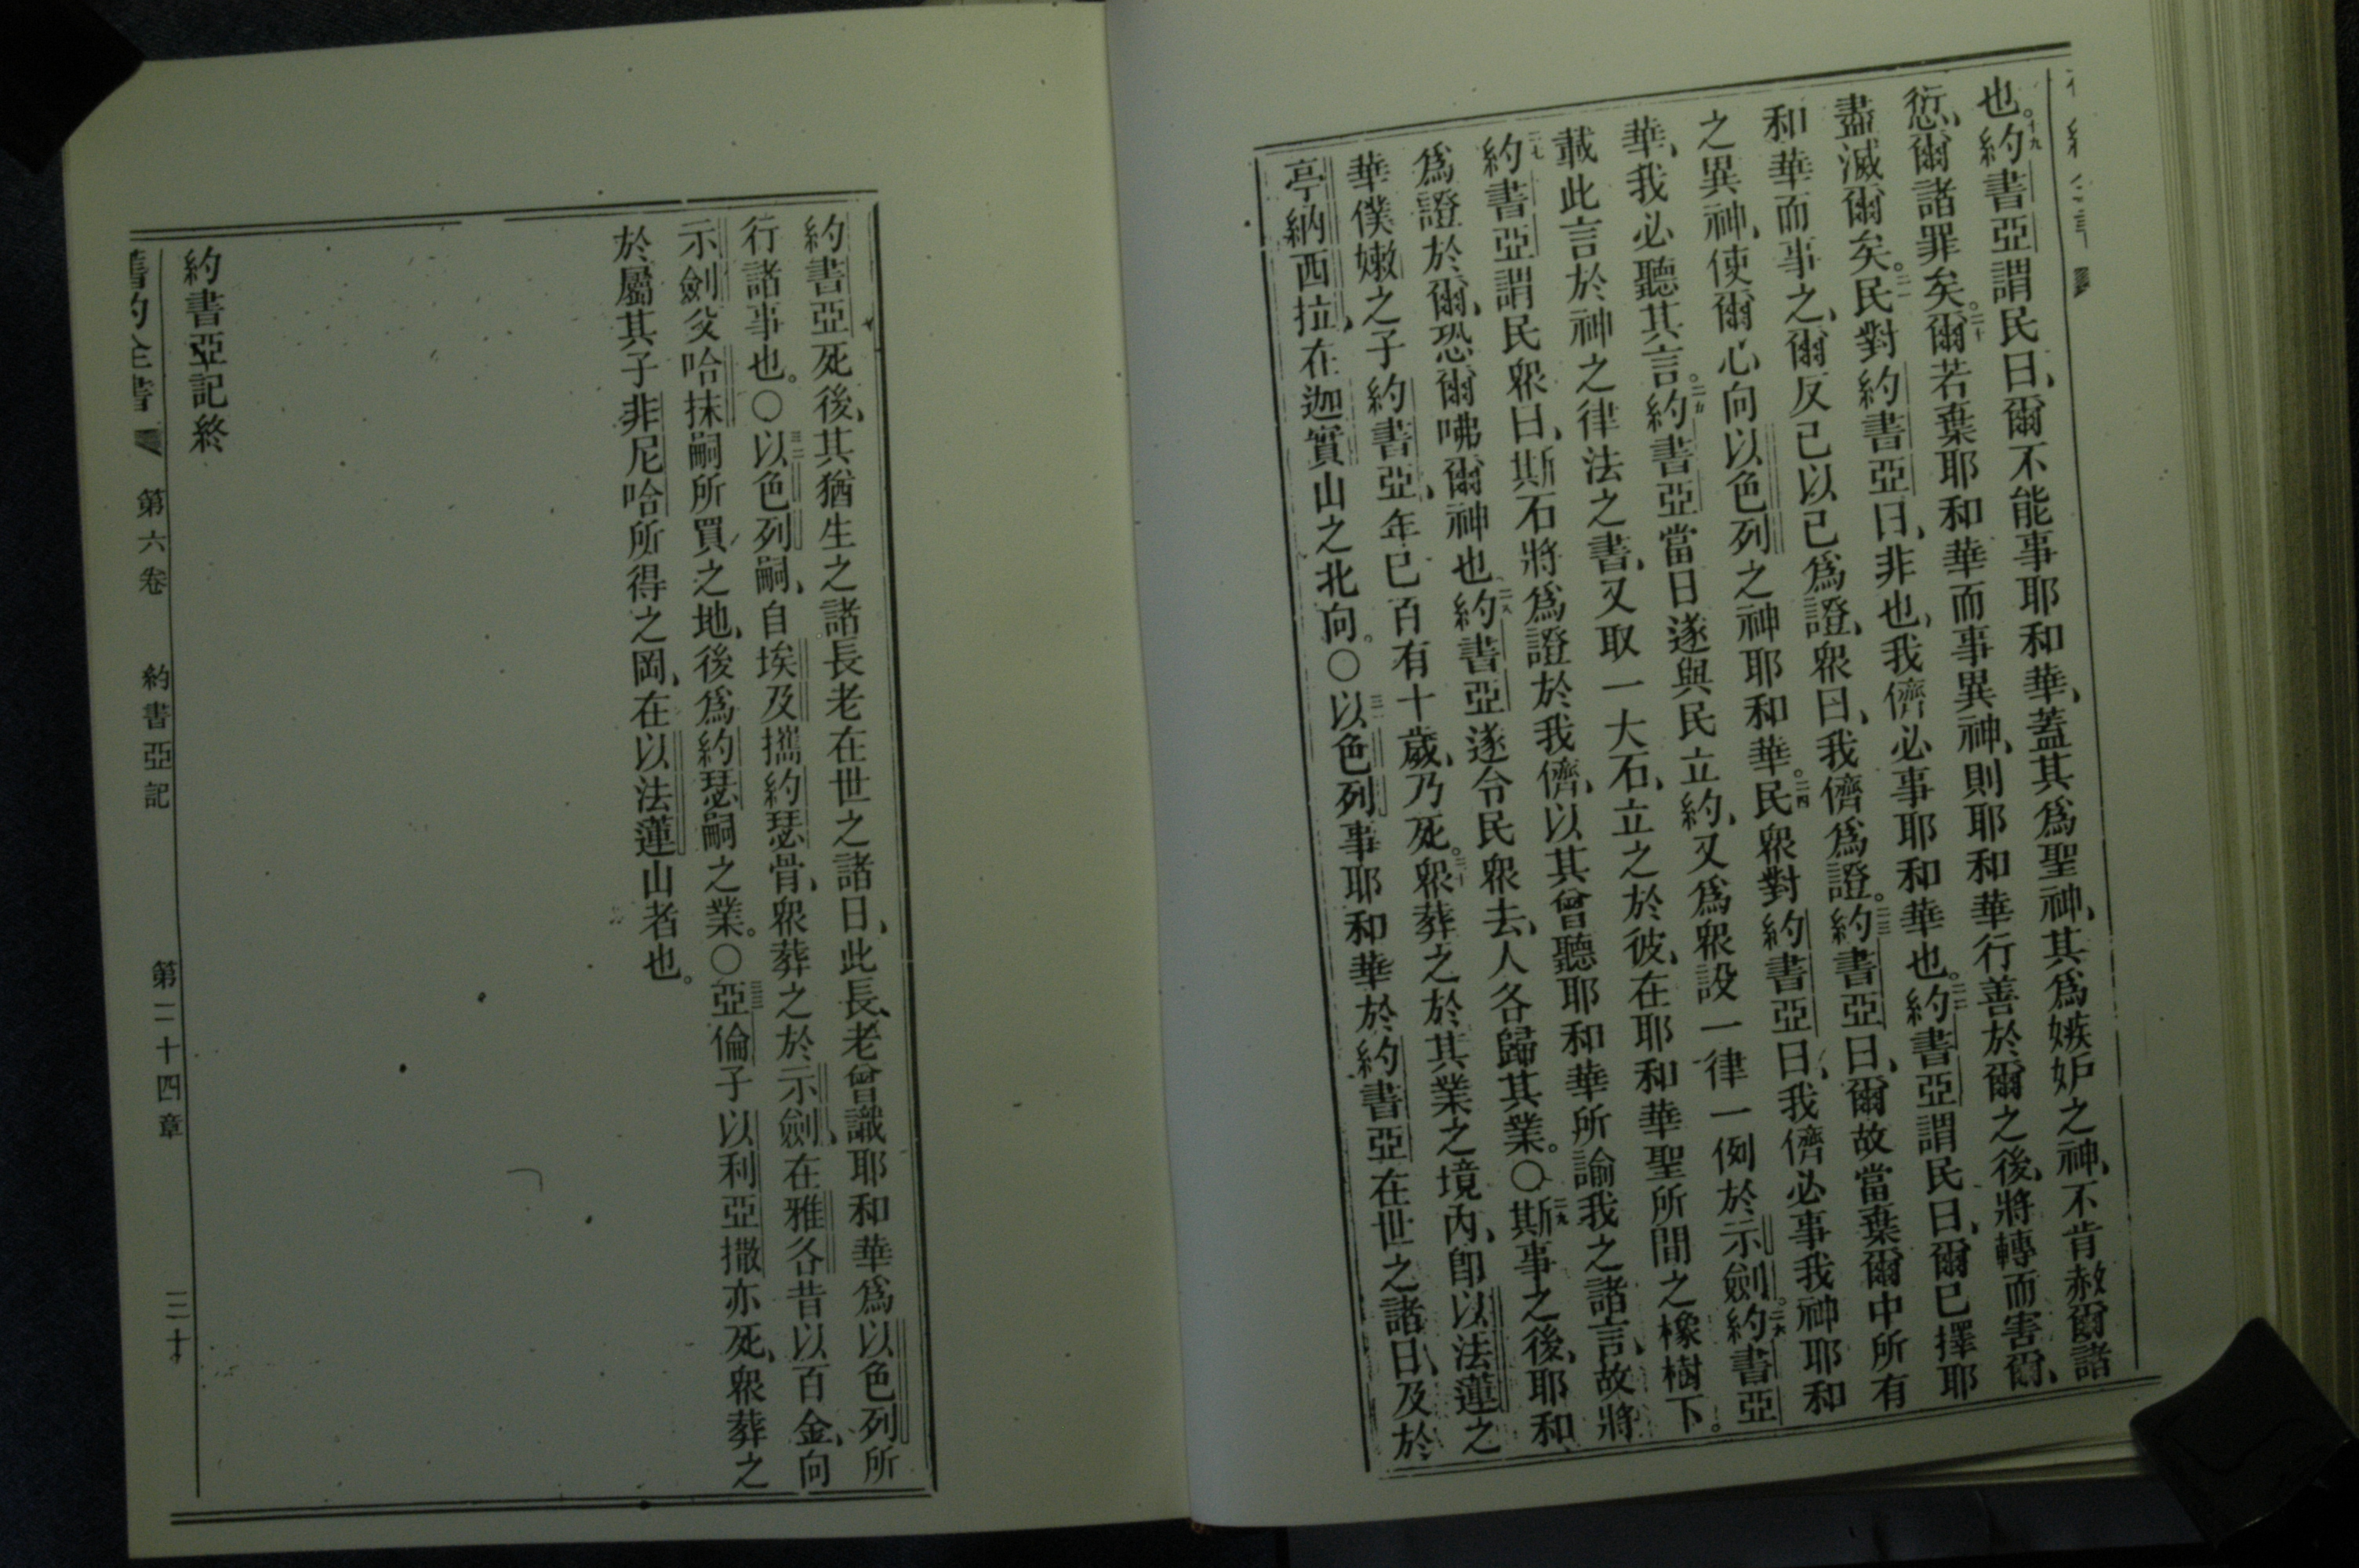 也。十九約書亞謂民曰、爾不能事耶和華、蓋其爲聖神、其爲嫉妒之神、不肯赦爾諸
愆、爾諸罪矣。二十爾若棄耶和華而事異神、則耶和華行善於爾之後、將轉而害爾、
盡滅爾矣。二一民對約書亞曰、非也、我儕必事耶和華也。二二約書亞謂民曰、爾已擇耶
和華而事之、爾反己以己爲證、衆曰、我儕爲證。二三約書亞曰、爾故當棄爾中所有
之異神、使爾心向以色列之神耶和華。二四民衆對約書亞曰、我儕必事我神耶和
華、我必聽其言。二五約書亞當日遂與民立約、又爲衆設一律一例於示劍。二六約書亞
載此言於神之律法之書、又取一大石、立之於彼、在耶和華聖所間之橡樹下。
二七約書亞謂民衆曰、斯石將爲證於我儕、以其曾聽耶和華所諭我之諸言、故將
爲證於爾、恐爾咈爾神也、二八約書亞遂令民衆去、人各歸其業。〇二九斯事之後、耶和
華僕嫩之子約書亞、年已百有十歲、乃死。三十衆葬之於其業之境內、卽以法蓮之
亭納西拉、在迦實山之北向。〇三一以色列事耶和華於約書亞在世之諸日、及於
約書亞死後、其猶生之諸長老在世之諸日、此長老曾識耶和華爲以色列所
行諸事也。〇三二以色列嗣、自埃及攜約瑟骨、衆葬之於示劍、在雅各昔以百金、向
示劍父哈抹嗣所買之地、後爲約瑟嗣之業。〇三三亞倫子以利亞撒亦死、衆葬之
於屬其子非尼哈所得之岡、在以法蓮山者也。
約書亞記終
舊約全書 第六卷 約書亞記 第二十四章 三十